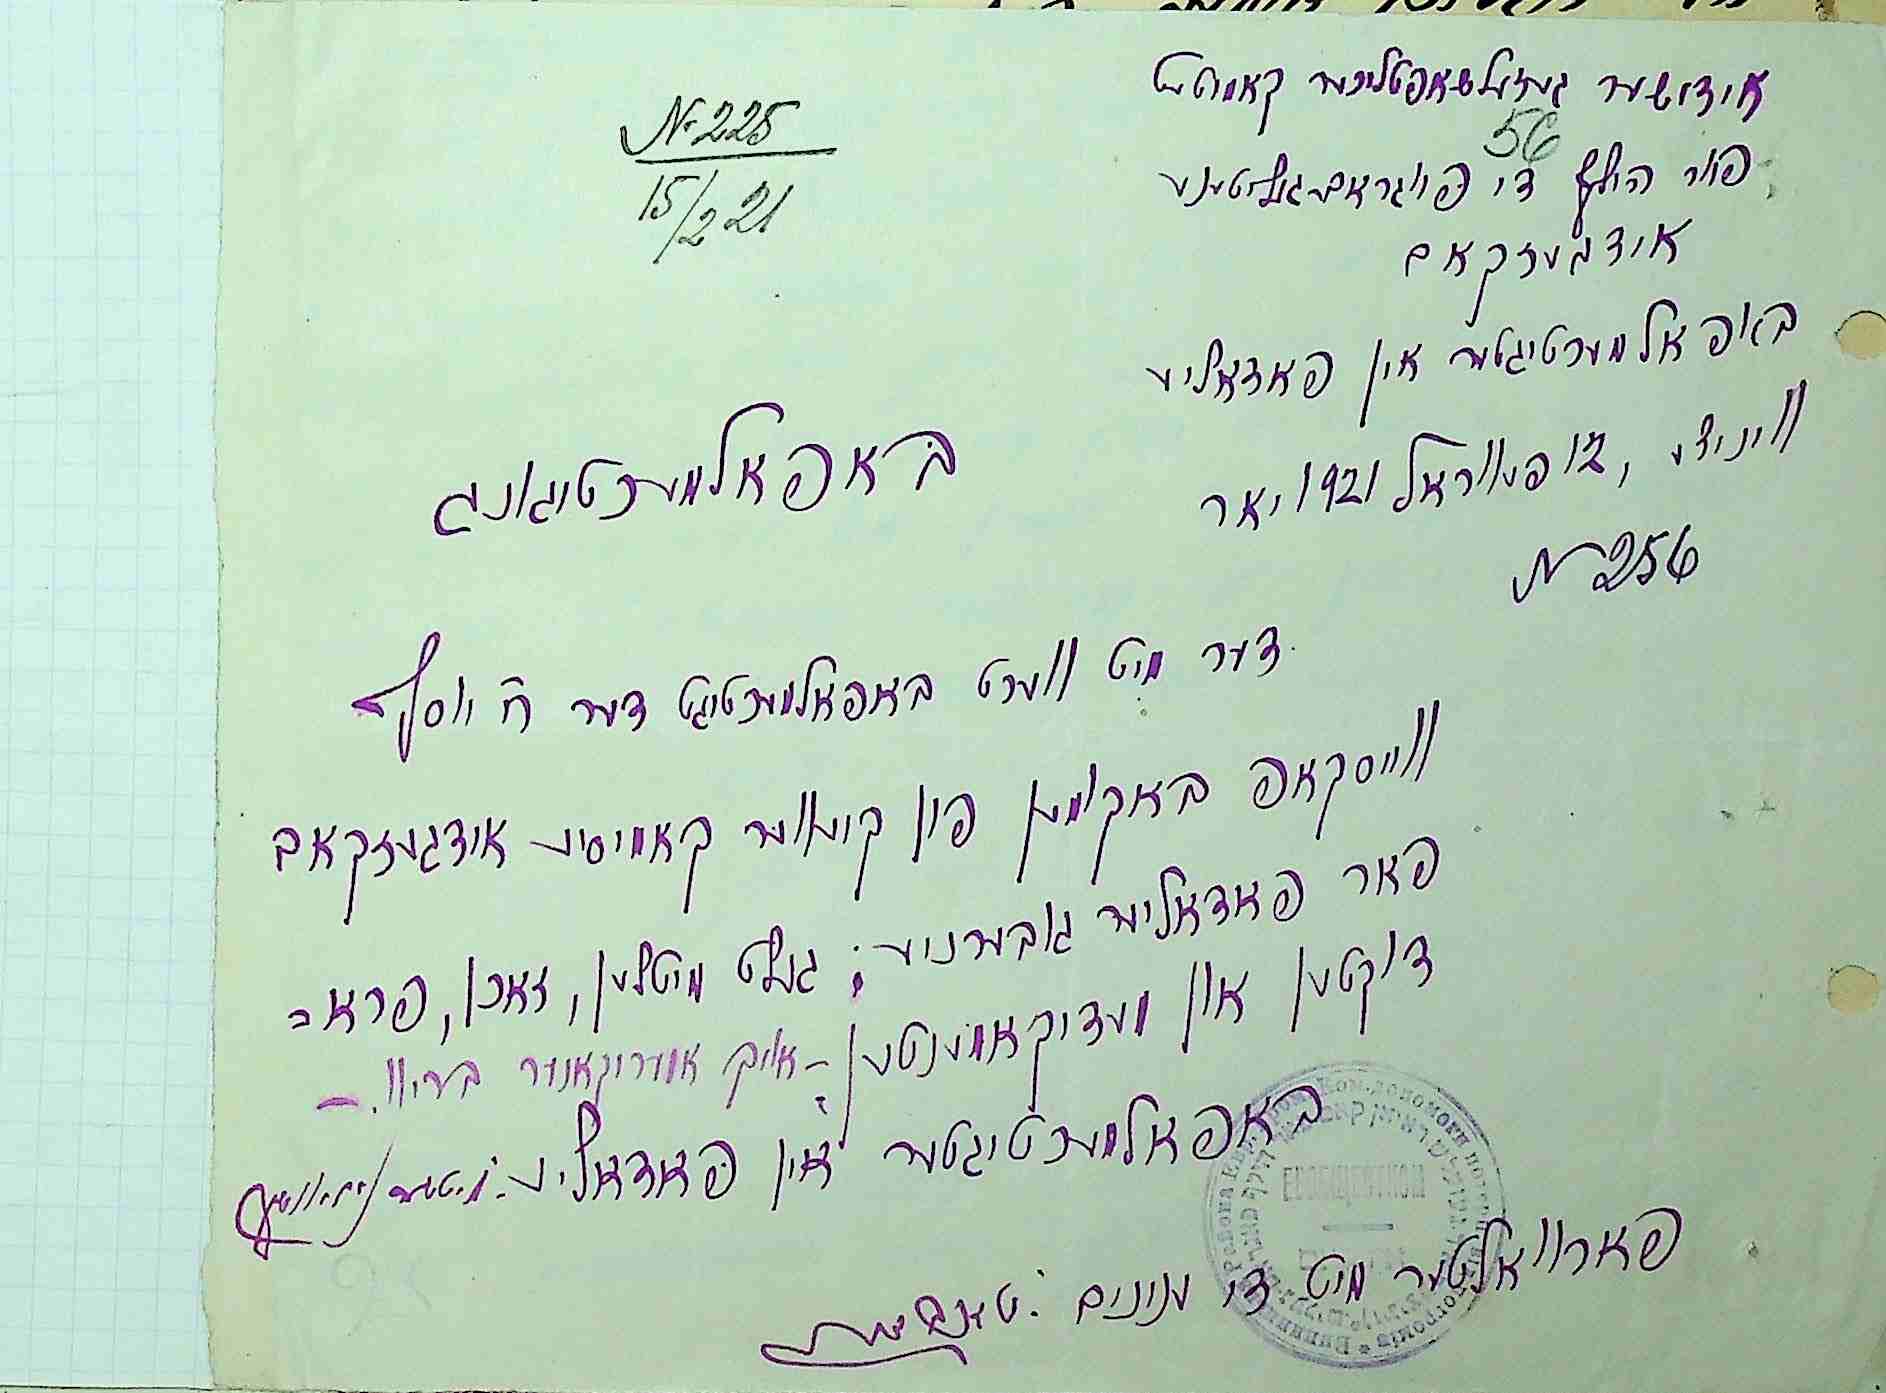 אידישער געזעלשאפטליכער קאמיטעט
56
פיר הילף די פויגראם-געליטענע
אידגעזקאם
באפאלמעכטיגטער אין פאדאליע
וויניצע, 12 פעווראל 1921 יאר
№ 256
№ 225
15/2 21
באפאלמעכטיגונג
דער מיט ווערט באפאלמעכטיגט דער ה' יוסף
ווייסקאפ באקומען פון קיעווער קאמיסיע אידגעזקאם
פאר פאדאליער גובערניע: געלט מיטלען, זאכן, פרא-
דוקטן און מעדיקאמענטען - אויך אמעריקאנער בריוו. -
באפאלמעכטיגטער אין פאדאליע:
פארוואלטער מיט די ענינים:
ЕВОБЩЕСТКОМ